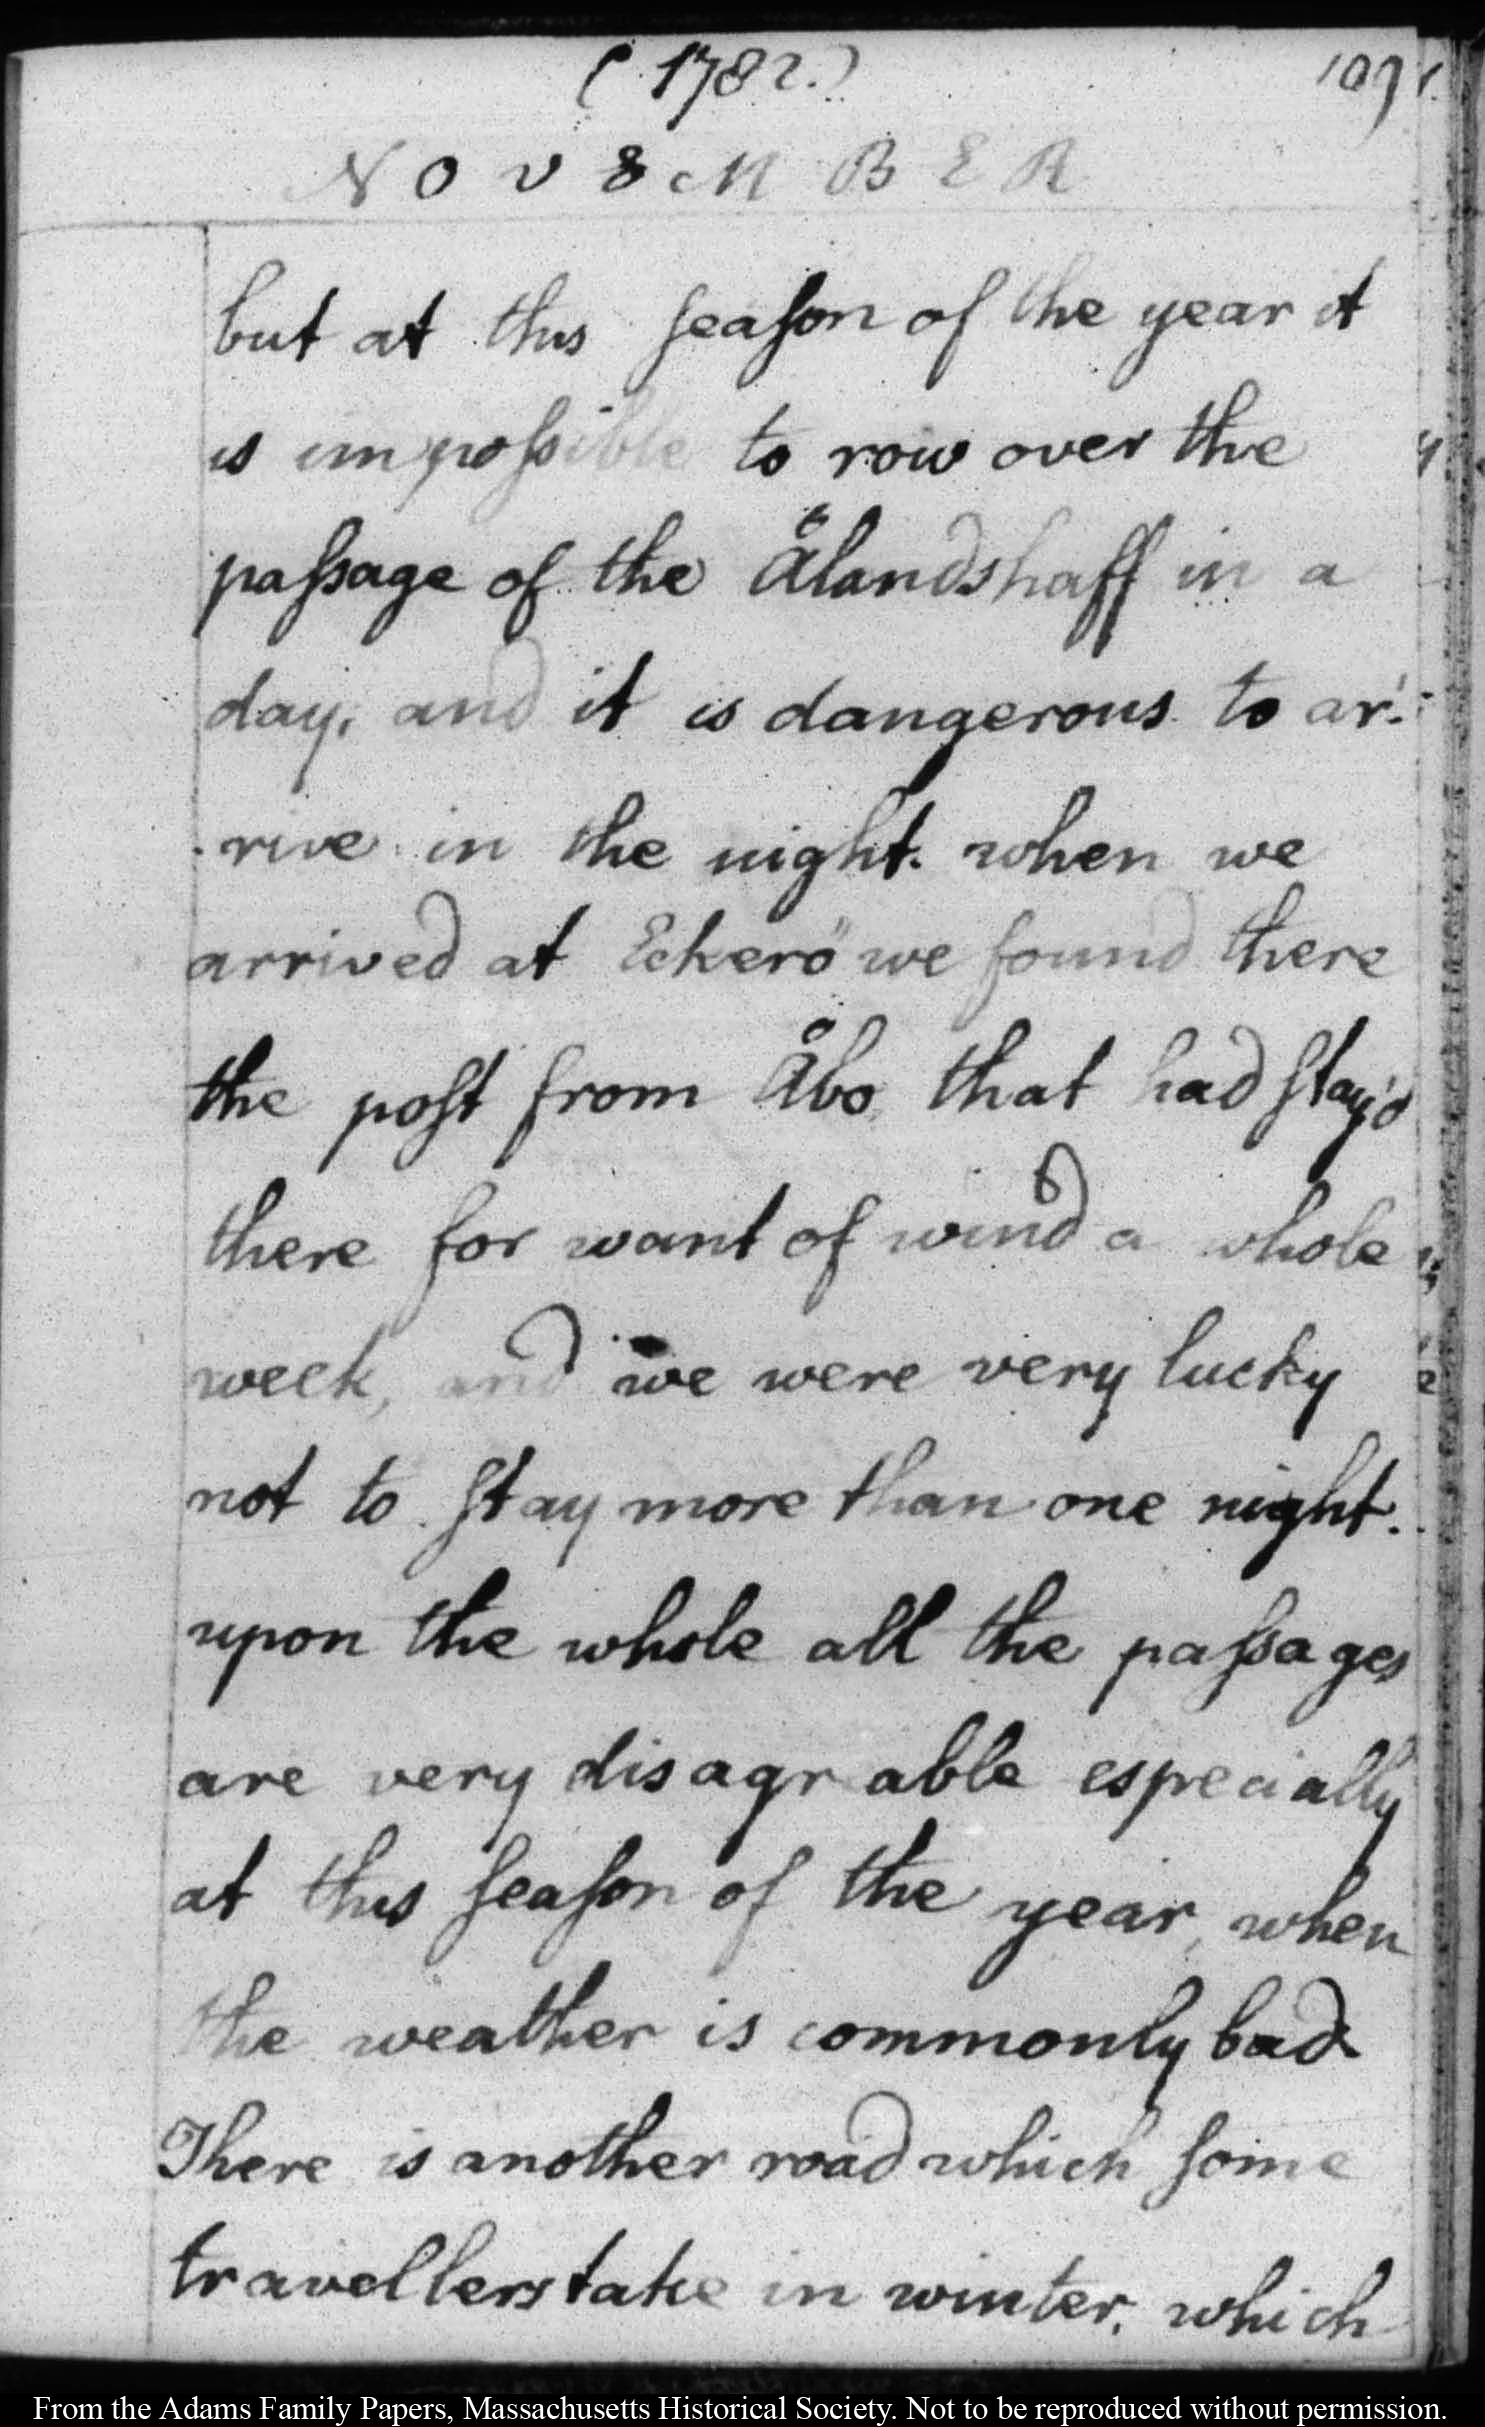 (1782.) 107
NOVEMBER
but at this season of the year it
is impossible to row over the
passage of the Ålandshaff in a
day, and it is dangerous to ar-
-rive in the night. when we
arrived at Eckerö we found there
the post from Åbo that had stay'd
there for want of wind a whole
week, and we were very lucky
not to stay more than one night.
upon the whole all the passages
are very disagrable especially
at this season of the year, when
the weather is commonly bad
There is another road which some
travellers take in winter, which
From the Adams Family Papers, Massachusetts Historical Society. Not to be reproduced without permission.